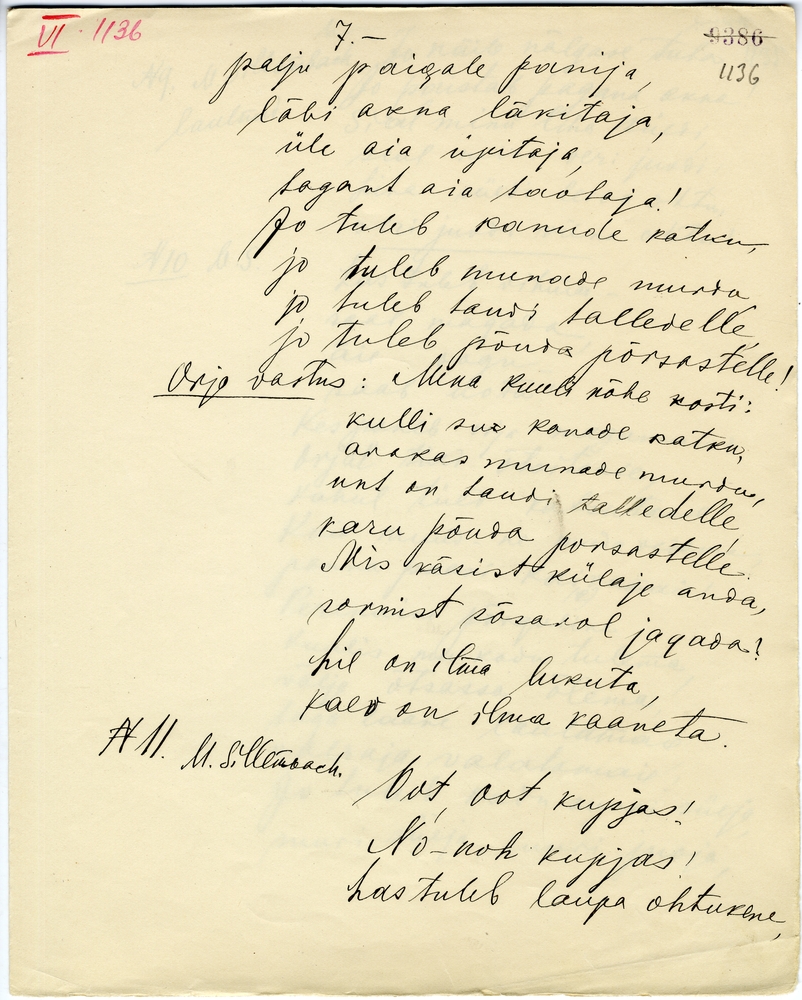 VI · 1136
7.—
9386
1136
palju paigale panija,
läbi akna läkitaja,
üle aia üpitaja,
tagant aia taotaja!
Jo tuleb kanude katku,
jo tuleb munade murdu,
jo tuleb taudi talledelle,
jo tuleb põuda põrsastelle!
Orjo vastus: Mina kuuli kohe kosti:
kulli suz kanade katku,
arakas munade murdu,
unt on taudi talledelle,
karu põuda porsastelle.
Mis käsist külaje anda,
sormist sõsarol jagada?
hil on ilma lukuta,
kaev on ilma kaaneta.
N 11. M. Sillenbach.
Oot, oot kupjas!
No-noh kupjas!
kas tuleb laupa ohtukene,